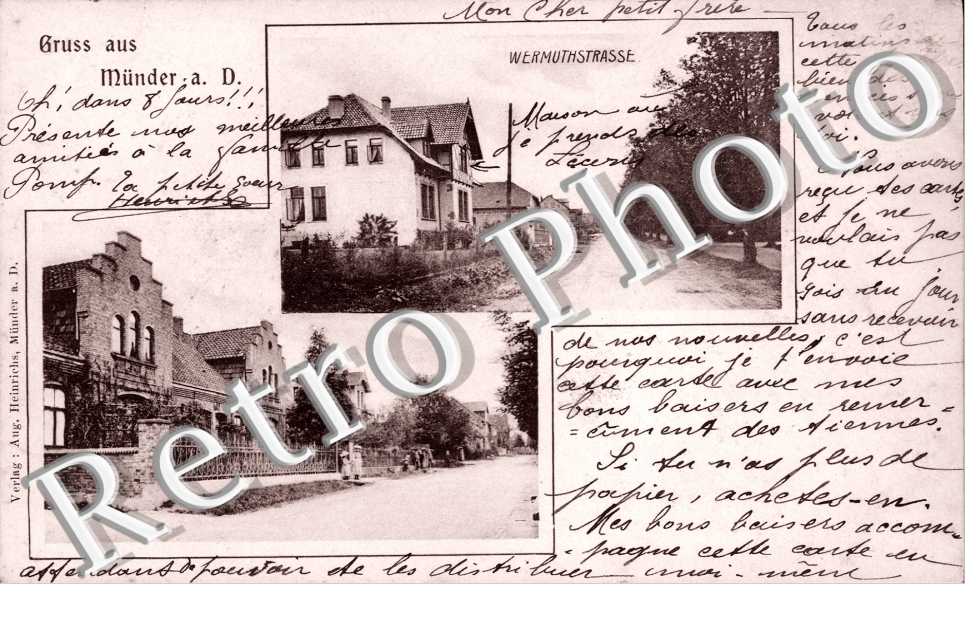 Mon Cher petit frère
Gruss aus
Münder a. D.
WERMUTHSTRASSE
Tous les
matins
cette
bien des
Oh! dans 8 jours!!!
Présente nos meilleures
amitiés à la
Ta petite soeur
Henriette
Maison où
je prends des
Leçons
Nous avons
reçu tes cartes
et je ne
voulais pas
que tu
sois un jour
sans recevoir
de nos nouvelles, c'est
pourquoi je t'envoie
cette carte avec mes
bons baisers en remer-
=cîment des tiennes.
Si tu n'as plus de
papier, achetes-en.
Mes bons baisers accom-
=pagne cette carte en
attendant de pouvoir te les distribuer moi-même
Verlag: Aug. Heinrichs, Münder a. D.
Retro Photo